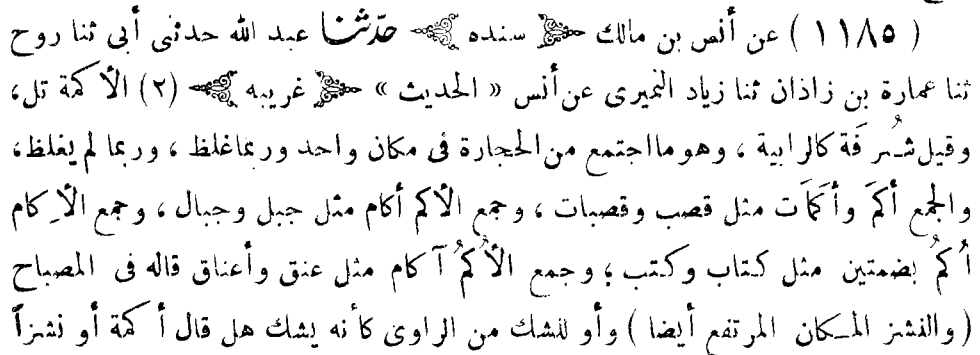 ( ١١٨٥ ) عن أنس بن مالك ﴿ سنده ﴾ حدّثنا عبد الله حدثنى أبى ثنا روح
ثنا عمارة بن زاذان ثنا زياد النميرى عن أنس « الحديث » ﴿ غريبه ﴾ (٢) الأكمة تل،
وقيل شُرفَة كالرابية ، وهو ما اجتمع من الحجارة فى مكان واحد وربما غلظ ، وربما لم يغلظ،
والجمع أكَمَ وأكَمَات مثل قصب وقصبات ، وجمع الأكم أكام مثل جبل وجبال ، وجمع الأِكام
أُكمُ بضمتين مثل كتاب وكتب ؛ وجمع الأُكُمُ آكام مثل عنق وأعناق قاله فى المصباح
( والنشز المكان المرتفع أيضا ) وأو للشك من الراوى كأنه يشك هل قال أكمة أو نشزاً